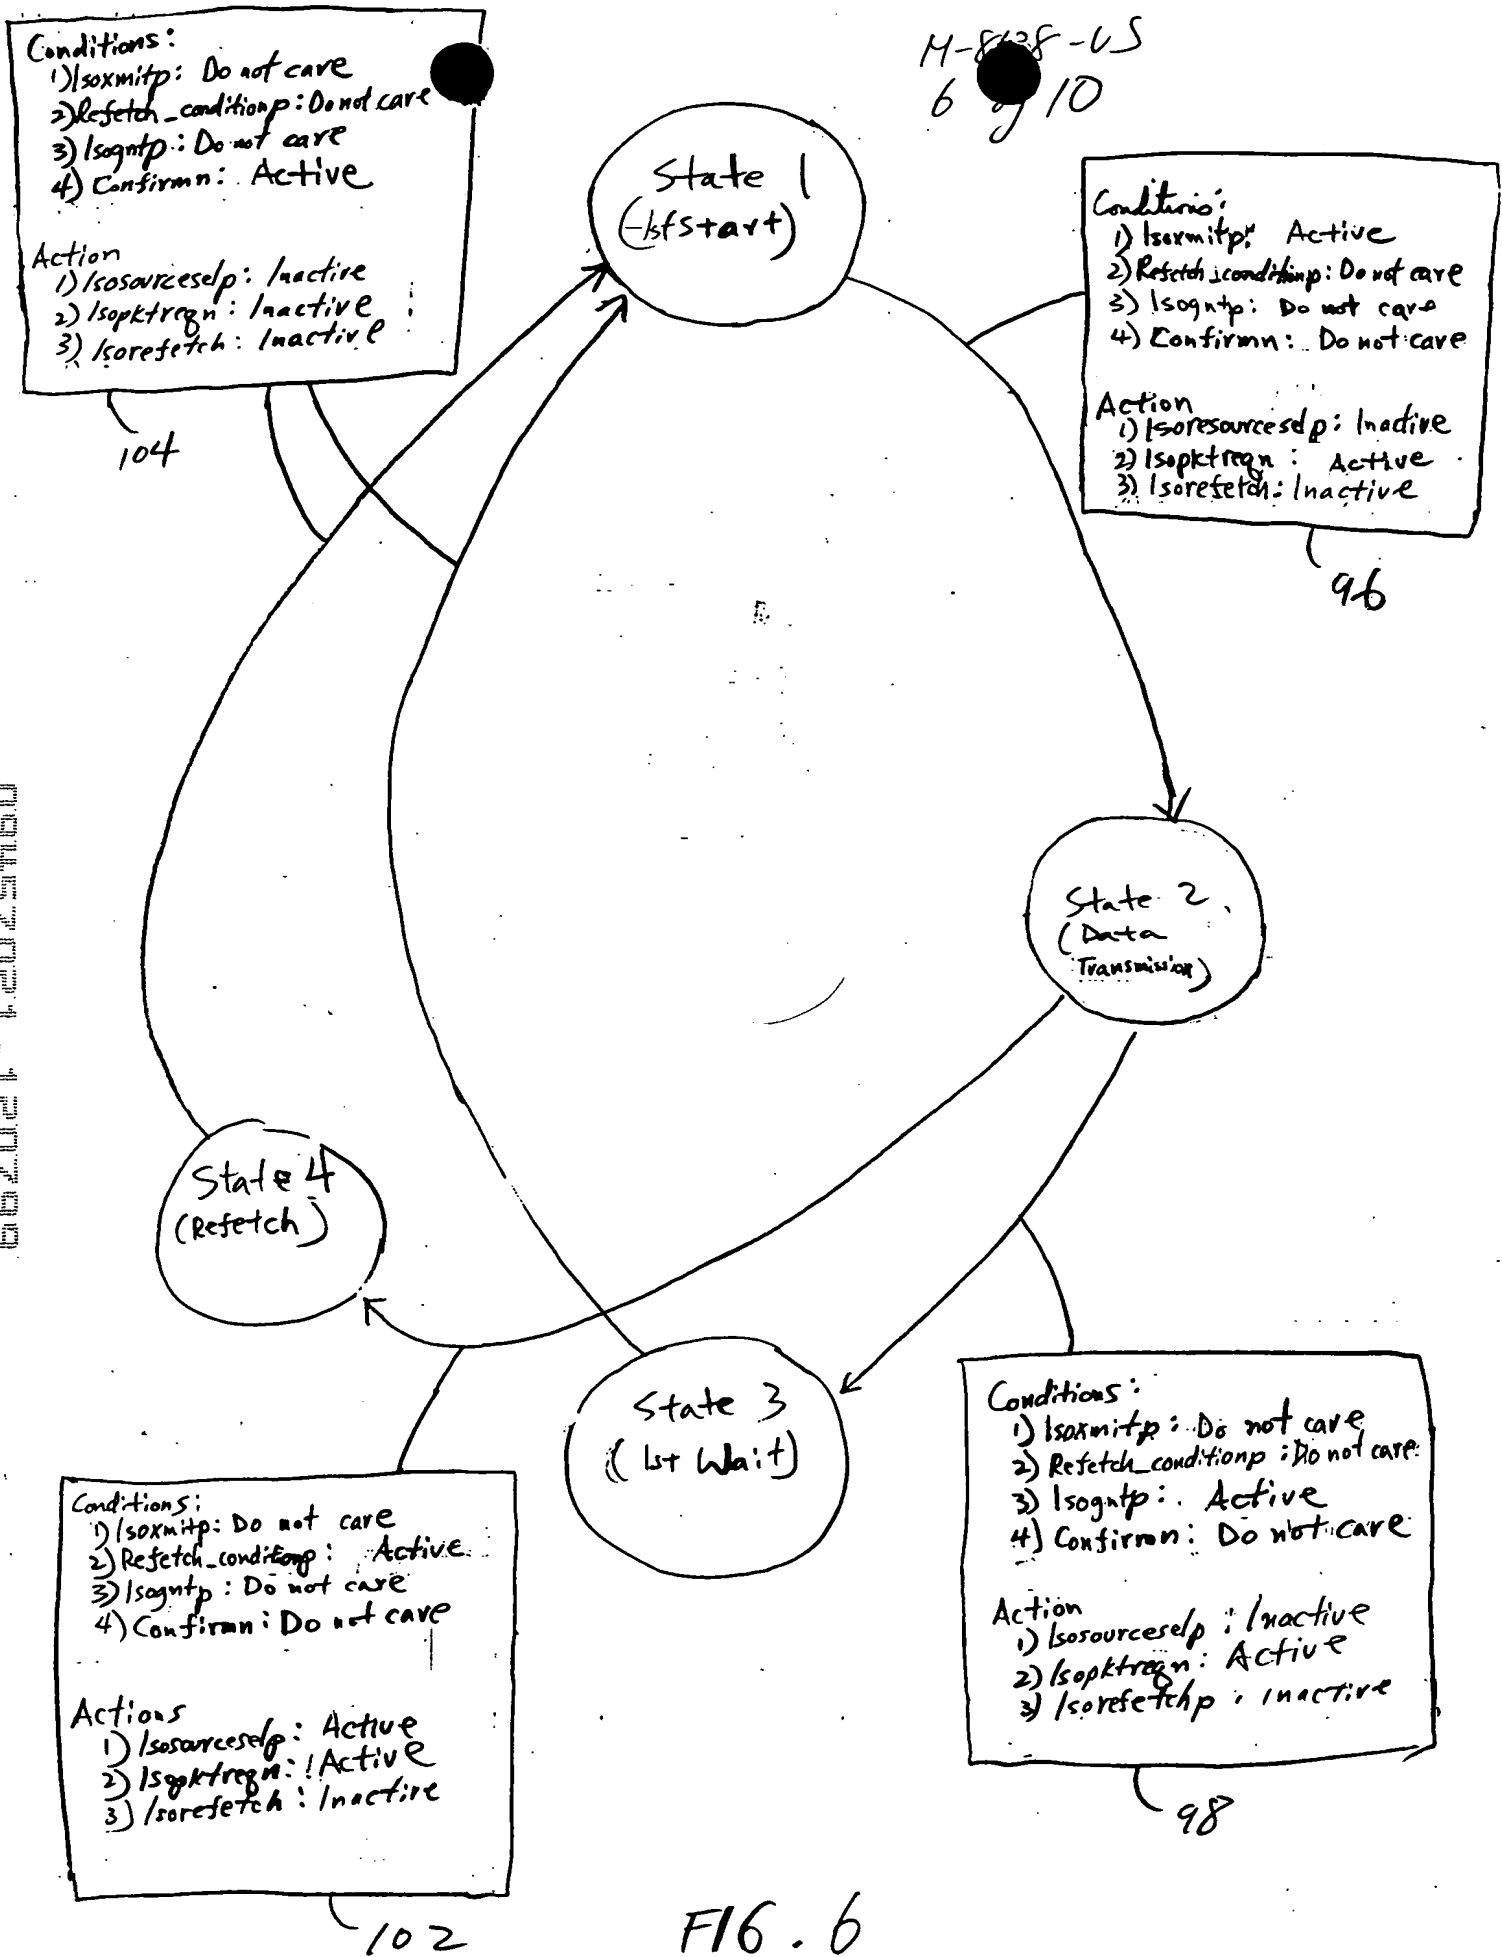 M-8638-US
6 of 10
Conditions:
1) Isoxmitp: Do not care
2) Refetch_conditionp: Do not care
3) Isogntp: Do not care
4) Confirmn: Active
Action
1) Isosourceselp: Inactive
2) Isopktreqn: Inactive
3) Isorefetch: Inactive
104
State 1
(1stStart)
Conditions:
1) Isoxmitp: Active
2) Refetch_conditionp: Do not care
3) Isogntp: Do not care
4) Confirmn: Do not care
Action
1) Isoresourceselp: Inactive
2) Isopktreqn: Active
3) Isorefetch: Inactive
96
State 2
(Data
Transmission)
State 4
(Refetch)
State 3
(1st Wait)
Conditions:
1) Isoxmitp: Do not care
2) Refetch_conditionp: Do not care
3) Isogntp: Active
4) Confirmn: Do not care
Action
1) Isosourceselp: Inactive
2) Isopktreqn: Active
3) Isorefetchp: Inactive
98
Conditions:
1) Isoxmitp: Do not care
2) Refetch_conditionp: Active
3) Isogntp: Do not care
4) Confirmn: Do not care
Actions
1) Isosourceselp: Active
2) Isopktreqn: Active
3) Isorefetch: Inactive
102
FIG. 6